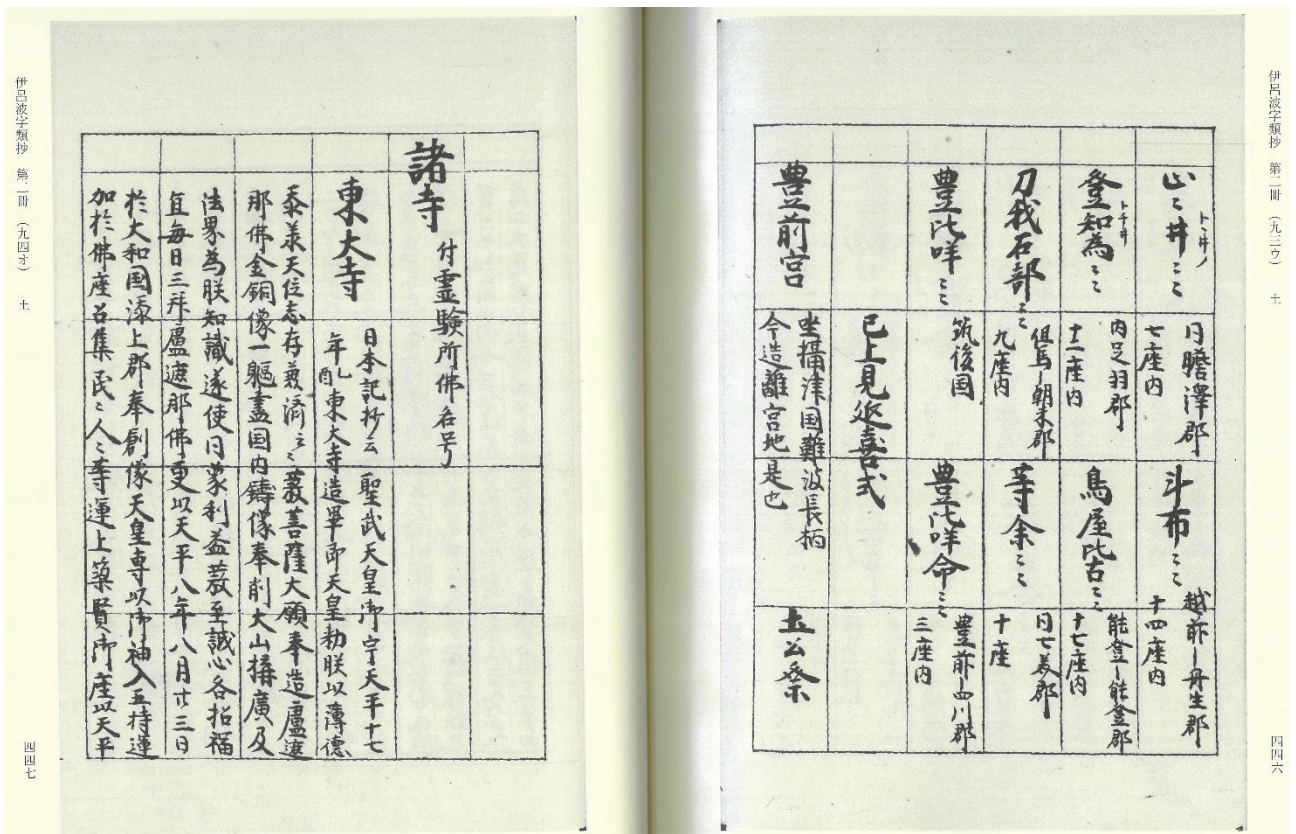 伊呂波字類抄 第二冊 (九三ウ) 土
止〻井〻〻 トヽ井ノ
同膽澤郡
七座内
斗布〻〻
越前ー丹生郡
十四座内
登知為〻〻 トチ井
内足羽郡
十二座内
鳥屋比古〻〻
能登ー能登郡
十七座内
刀我石部〻〻
但馬ー朝来郡
九座内
等余〻〻
同七美郡
十座
豊比咩〻〻
筑後国
豊比咩命〻〻
豊前ー田川郡
三座内
已上見延喜式
豊前宮
坐攝津国難波長柄
今造離宮地是也
土公祭
四四六
伊呂波字類抄 第二冊 (九四オ) 土
諸寺 付霊験所佛名号
東大寺
日本記抄云 聖武天皇御宇天平十七
年乙酉東大寺造畢即天皇勅朕以薄德
忝美天位志存兼済云〻 䒾菩薩大願奉造盧遮
那佛金銅像一軀盡国内鑄像奉削大山構廣及
法界為朕知識遂使同蒙利益䒾至誠心各招福
宜每日三拜盧遮那佛更以天平八年八月廿三日
於大和国添上郡奉創像天皇専以御袖入土持運
加於佛座召集氏〻人〻等運上築賢御座以天平
四四七